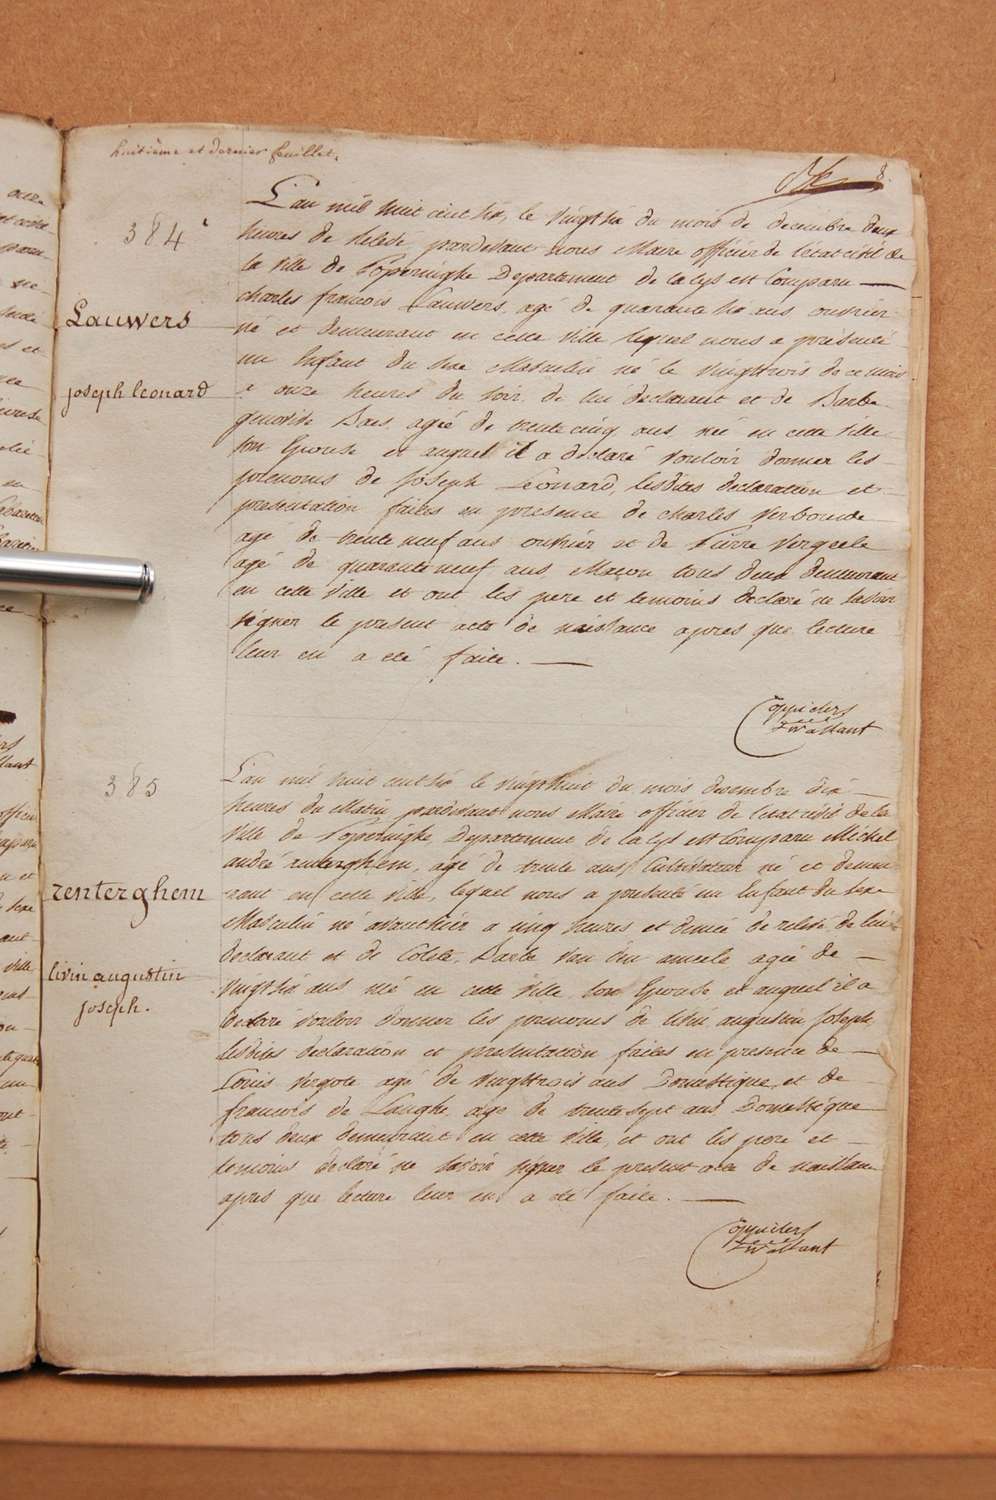 huitième et dernier feuillet.
8.
384
Lauwers
joseph leonard
L'an mil huit cent six, le vingt six du mois de decembre deux
heures de relevé, pardevant nous Maire officier de l'état civil de
la ville de Poperinghe Departement de la lys est Comparu —
charles francois Lauwers, agé de quarante six ans ouvrier
né et demeurant en cette ville lequel nous a présenté
un Enfant du sexe Masculin né le vingt trois de ce mois
a onze heures du soir de lui declarant et de Barbe
Baes, agée de trente cinq ans, née en cette ville
son Epouse et auquel il a declaré vouloir donner les
prenoms de Joseph Leonard, lesdites declaration et
presentation faites en presence de charles
agé de trente neuf ans ouvrier et de Pierre
agé de quarante neuf ans Maçon tous deux demeurant
en cette ville et ont les pere et temoins declaré ne savoir
signer le present acte de naissance apres que lecture
leur en a eté faite. —
385
renterghem
livin augustin
joseph.
L'an mil huit cent six le vingt huit du mois decembre dix —
heures du Matin pardevant nous Maire officier de l'état civil de la
ville de Poperinghe Departement de la lys est Comparu Michel
andré renterghem, agé de trente ans Cultivateur né et demeu
rant en cette ville, lequel nous a présenté un Enfant du sexe
Masculin né avanthier a cinq heures et demie de relevé de lui
declarant et de Colete Barbe van agée de —
vingt six ans née en cette ville son Epouse et auquel il a
declaré vouloir donner les prenoms de livin augustin Joseph
lesdites declaration et presentation faites en presence de —
Louis Vergote agé de vingt trois ans Domestique et de
francois de Langhe agé de trente sept ans Domestique
tous deux demeurant en cette ville, et ont les pere et —
temoins declaré ne savoir signer le present acte de naissance
apres que lecture leur en a eté faite. —